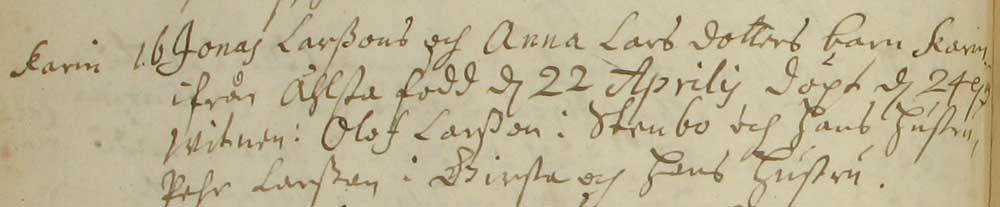 Karin 16 Jonas Larßons och Anna Lars dotters barn Karin
ifrån Ählsta född d 22 Aprilis döpt d 24
Witnen: Olof Larßon i Stenbo och hans hustru,
Pehr Larßon i Girsta och hans hustru.